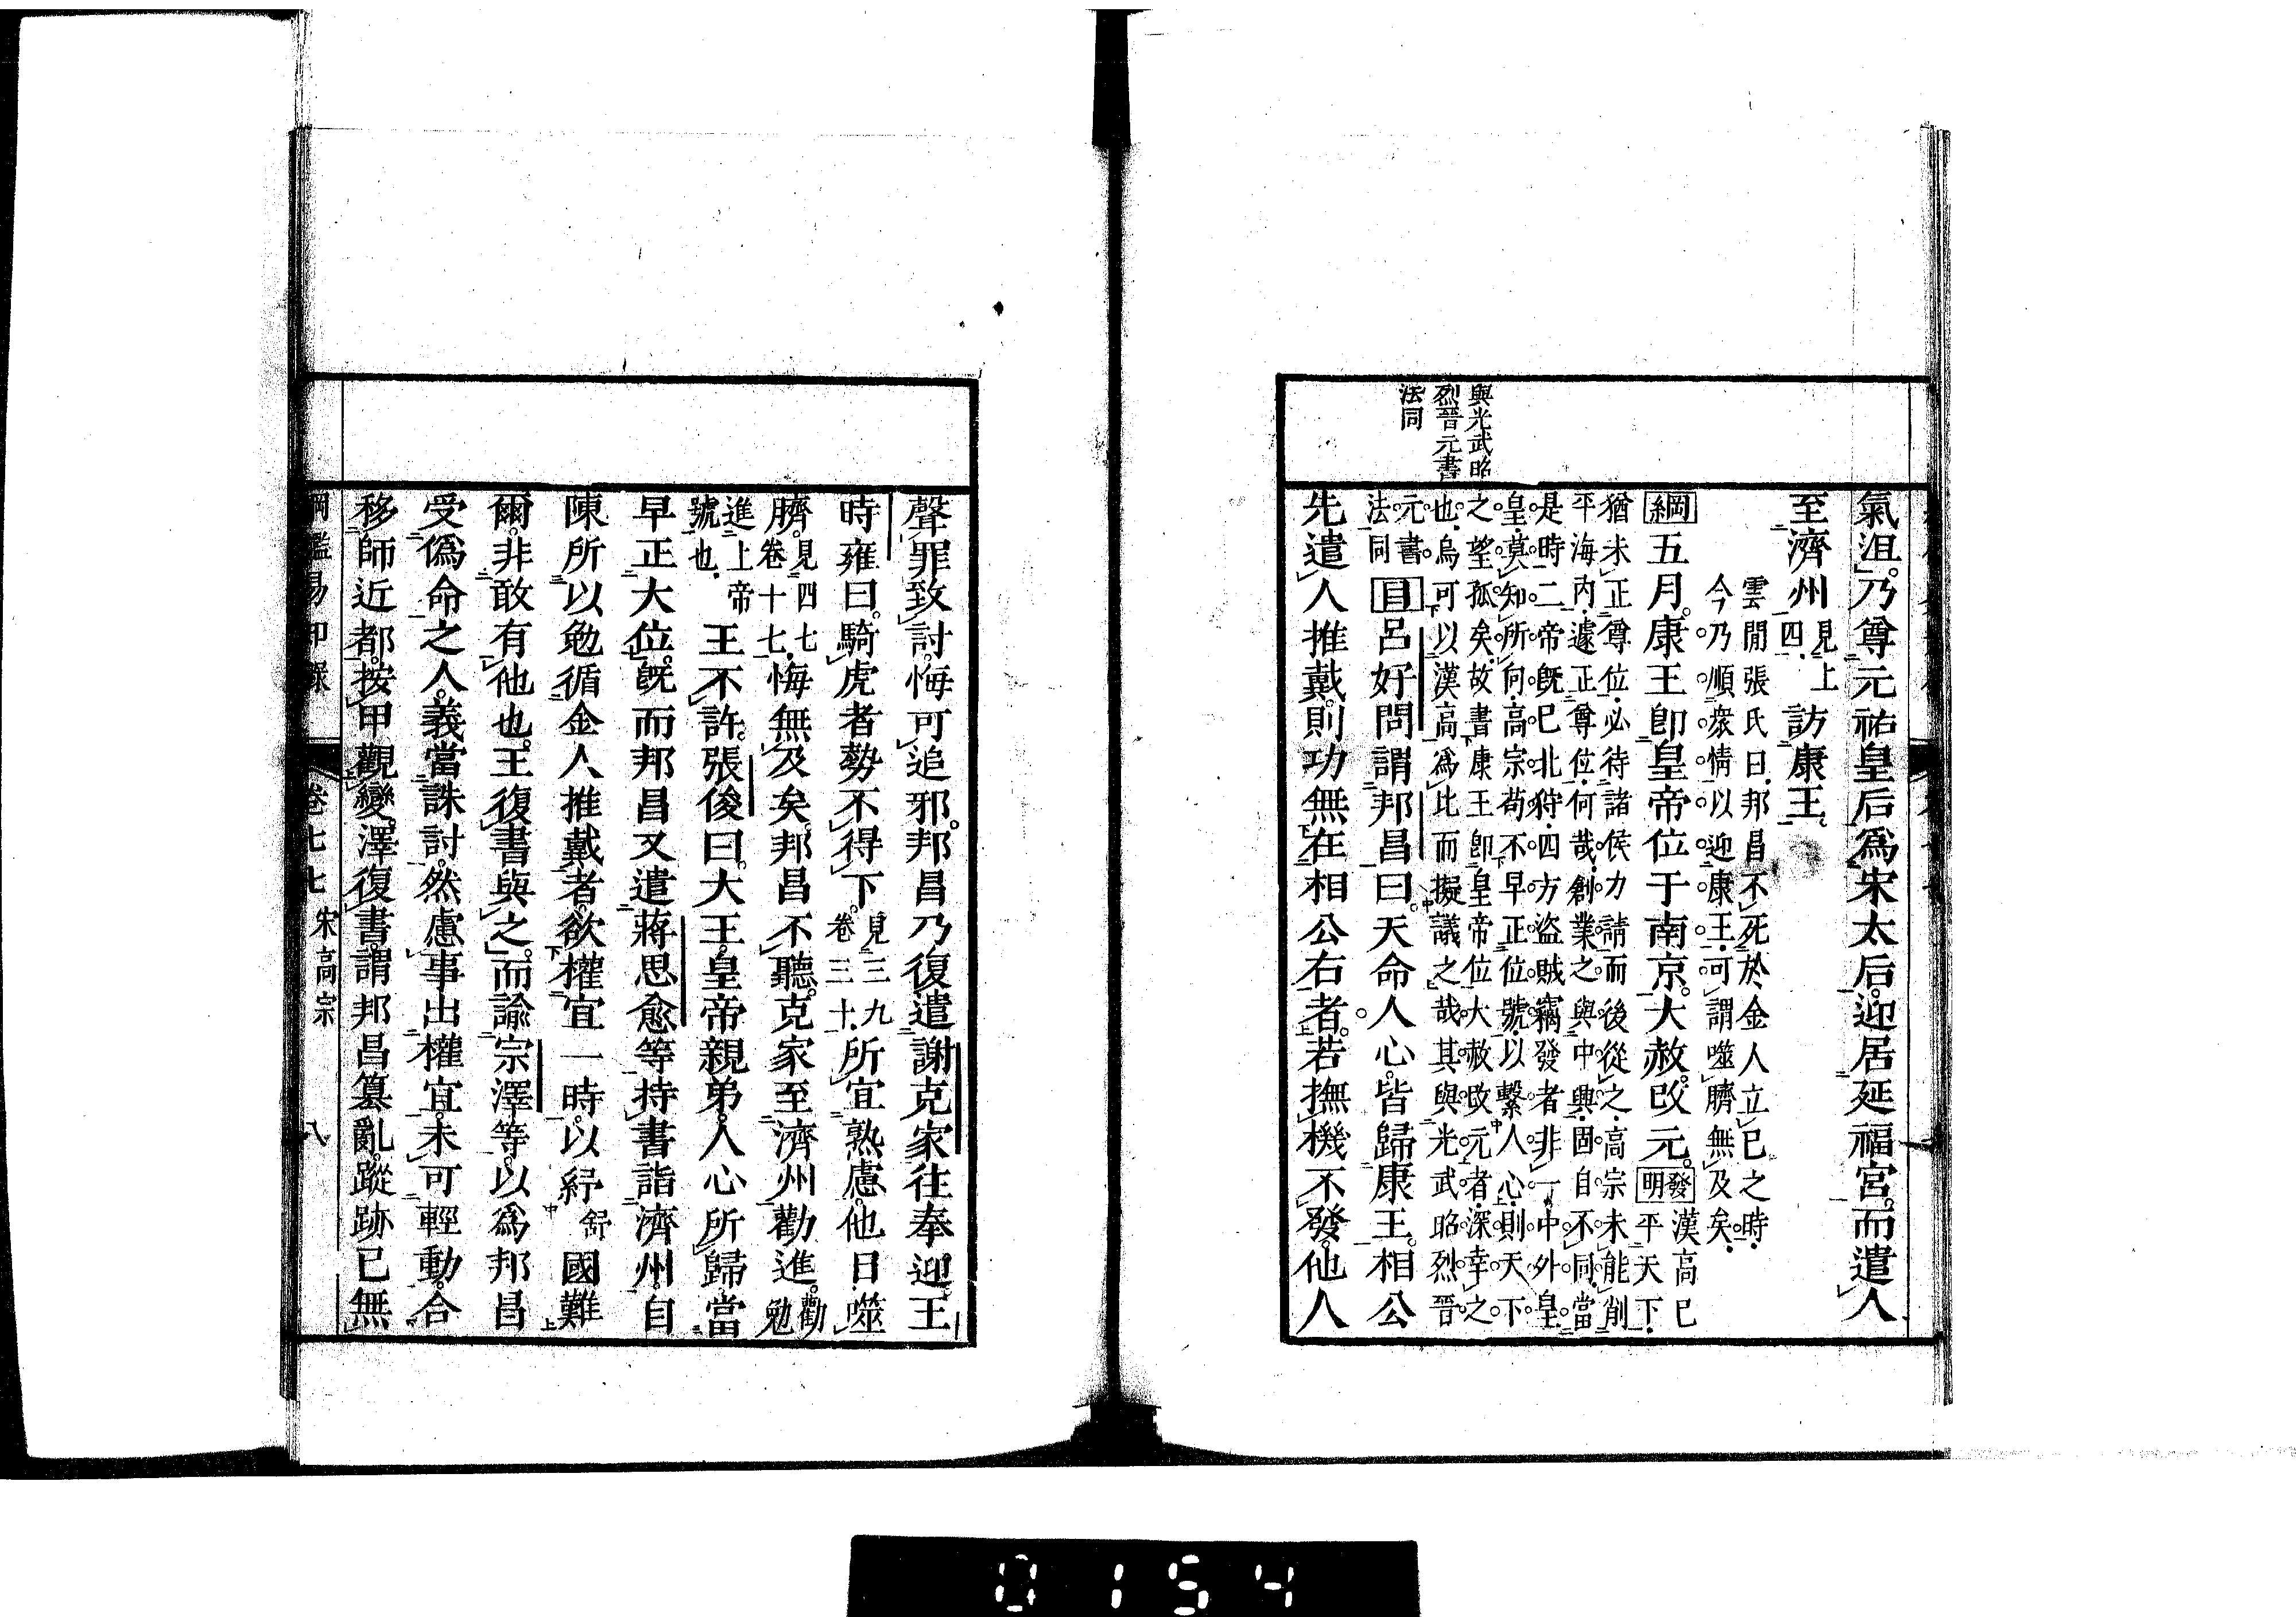 與光武昭
烈晉元書
法同
氣沮。乃尊元祐皇后爲宋太后。迎居延福宮。而遣人
至濟州
見上
四
訪康王。
雲閒張氏曰邦昌不死於金人立已之時
今乃順衆情以迎康王可謂噬臍無及矣
綱五月。康王卽皇帝位于南京。大赦。改元。
發明
漢高已
平天下
猶未正尊位必待諸侯力請而後從之高宗未能削
平海内遽正尊位何哉創業之與中興固自不同當
是時二帝旣已北狩四方盜賊竊發者非一中外皇
皇莫知所向高宗苟不早正位號以繫人心則天下
之望孤矣故書康王卽皇帝位大赦改元者深幸之
也烏可以漢高爲比而擬議之哉其與光武昭烈晉
元書
法同
目呂好問謂邦昌曰。天命人心。皆歸康王。相公
先遣人推戴。則功無在相公右者。若撫機不發。他人
聲罪致討。悔可追邪。邦昌乃復遣謝克家往奉迎王
時雍曰。騎虎者勢不得下。
見三九
卷三十
所宜熟慮。他日噬
臍。
見四七
卷十七
悔無及矣。邦昌不聽。克家至濟州勸進。
勸
勉
進上帝
號也
王不許。張俊曰。大王。皇帝親弟。人心所歸當
早正大位。旣而邦昌又遣蔣思愈等持書詣濟州。自
陳所以勉循金人推戴者。欲權宜一時。以紓
舒
國難
爾。非敢有他也。王復書與之。而諭宗澤等。以爲邦昌
受僞命之人。義當誅討。然慮事出權宜。未可輕動。合
移師近都。按甲觀變。澤復書。謂邦昌篡亂。蹤跡已無
綱鑑易知錄 卷七七 宋高宗 八
0154